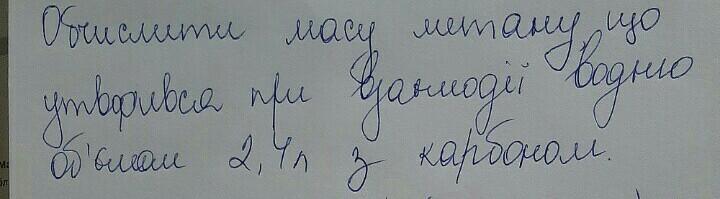 Обчислити масу метану що
утворився при взаємодії водню
об'ємом 2,4л з карбоном.